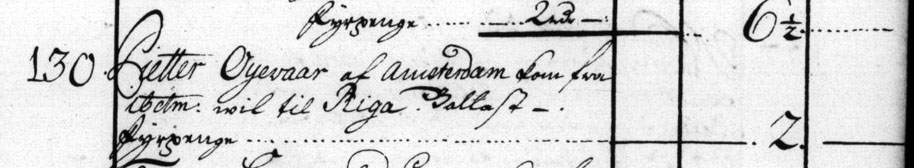 Fyrpenge ...... 2 rdr — 6½
130 Pietter Oyevaar af Amsterdam kom fra
ibdm. wil til Riga Ballast —.
Fyrpenge ........ 2